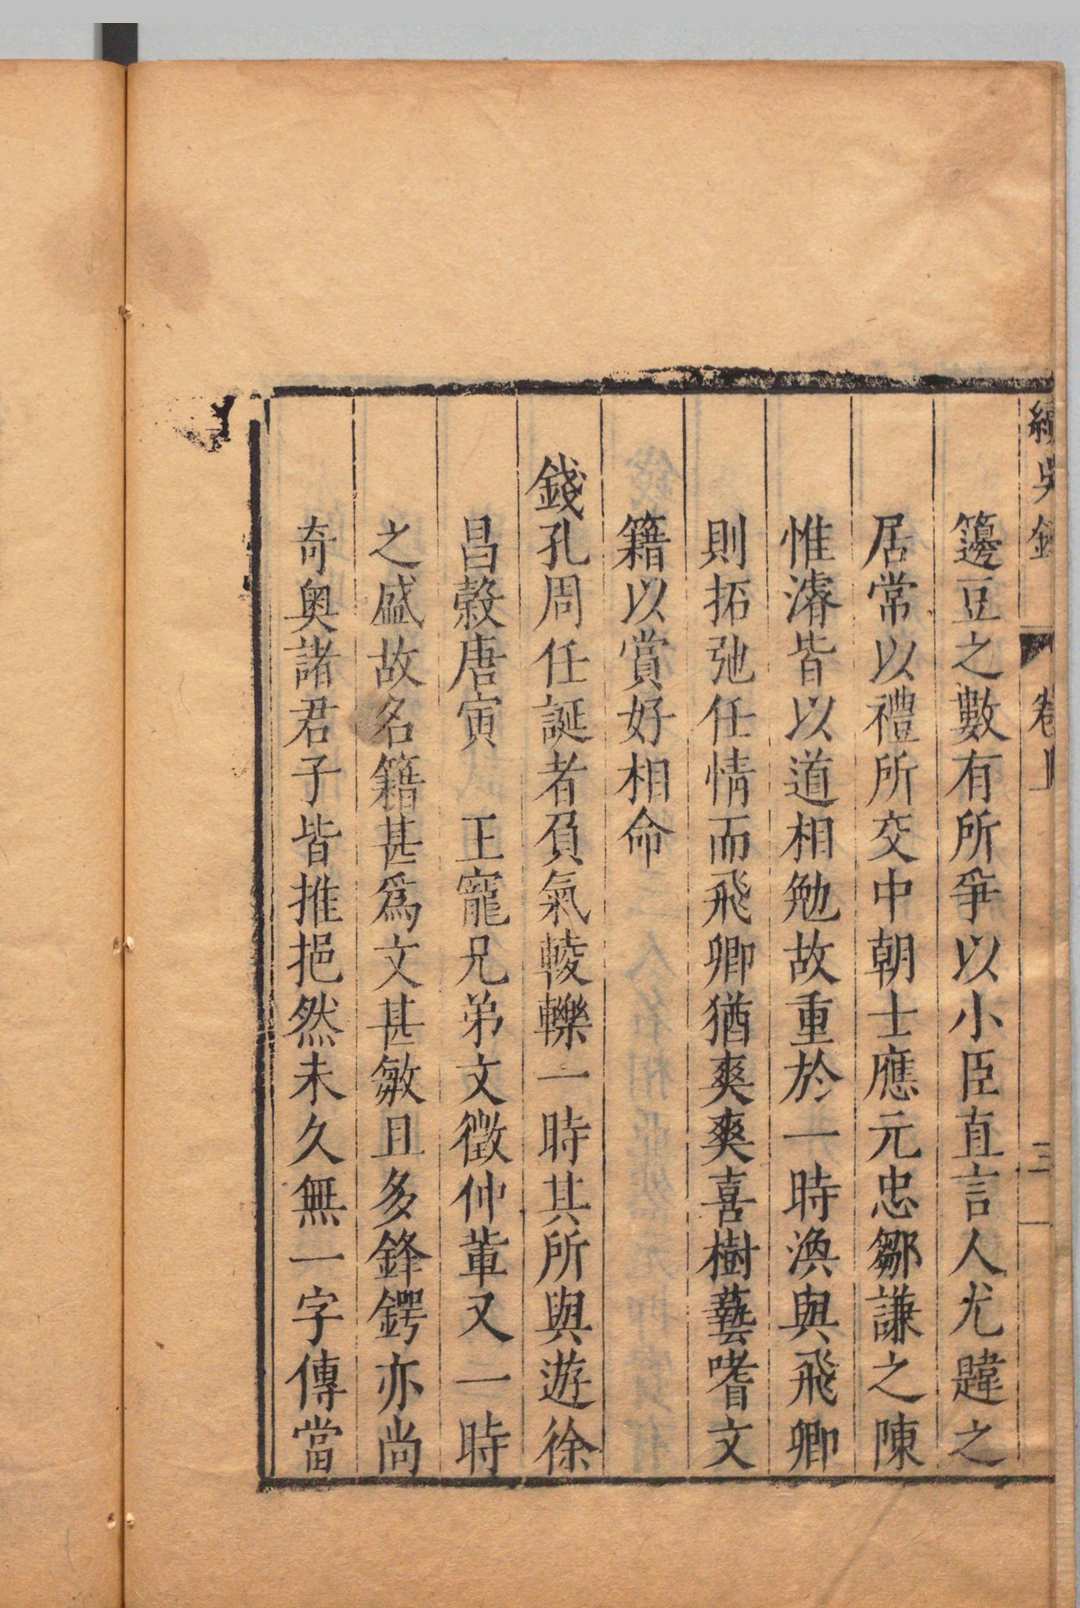 續吳錄 卷 三
籩豆之數有所爭以小臣直言人尤韙之
居常以禮所交中朝士應元忠鄒謙之陳
惟濬皆以道相勉故重於一時渙與飛卿
則拓弛任情而飛卿猶爽爽喜樹藝嗜文
籍以賞好相命
錢孔周任誕者負氣輘轢一時其所與遊徐
昌穀唐寅 王寵兄弟文徵仲輩又一時
之盛故名籍甚爲文甚敏且多鋒鍔亦尚
奇奧諸君子皆推挹然未久無一字傳當